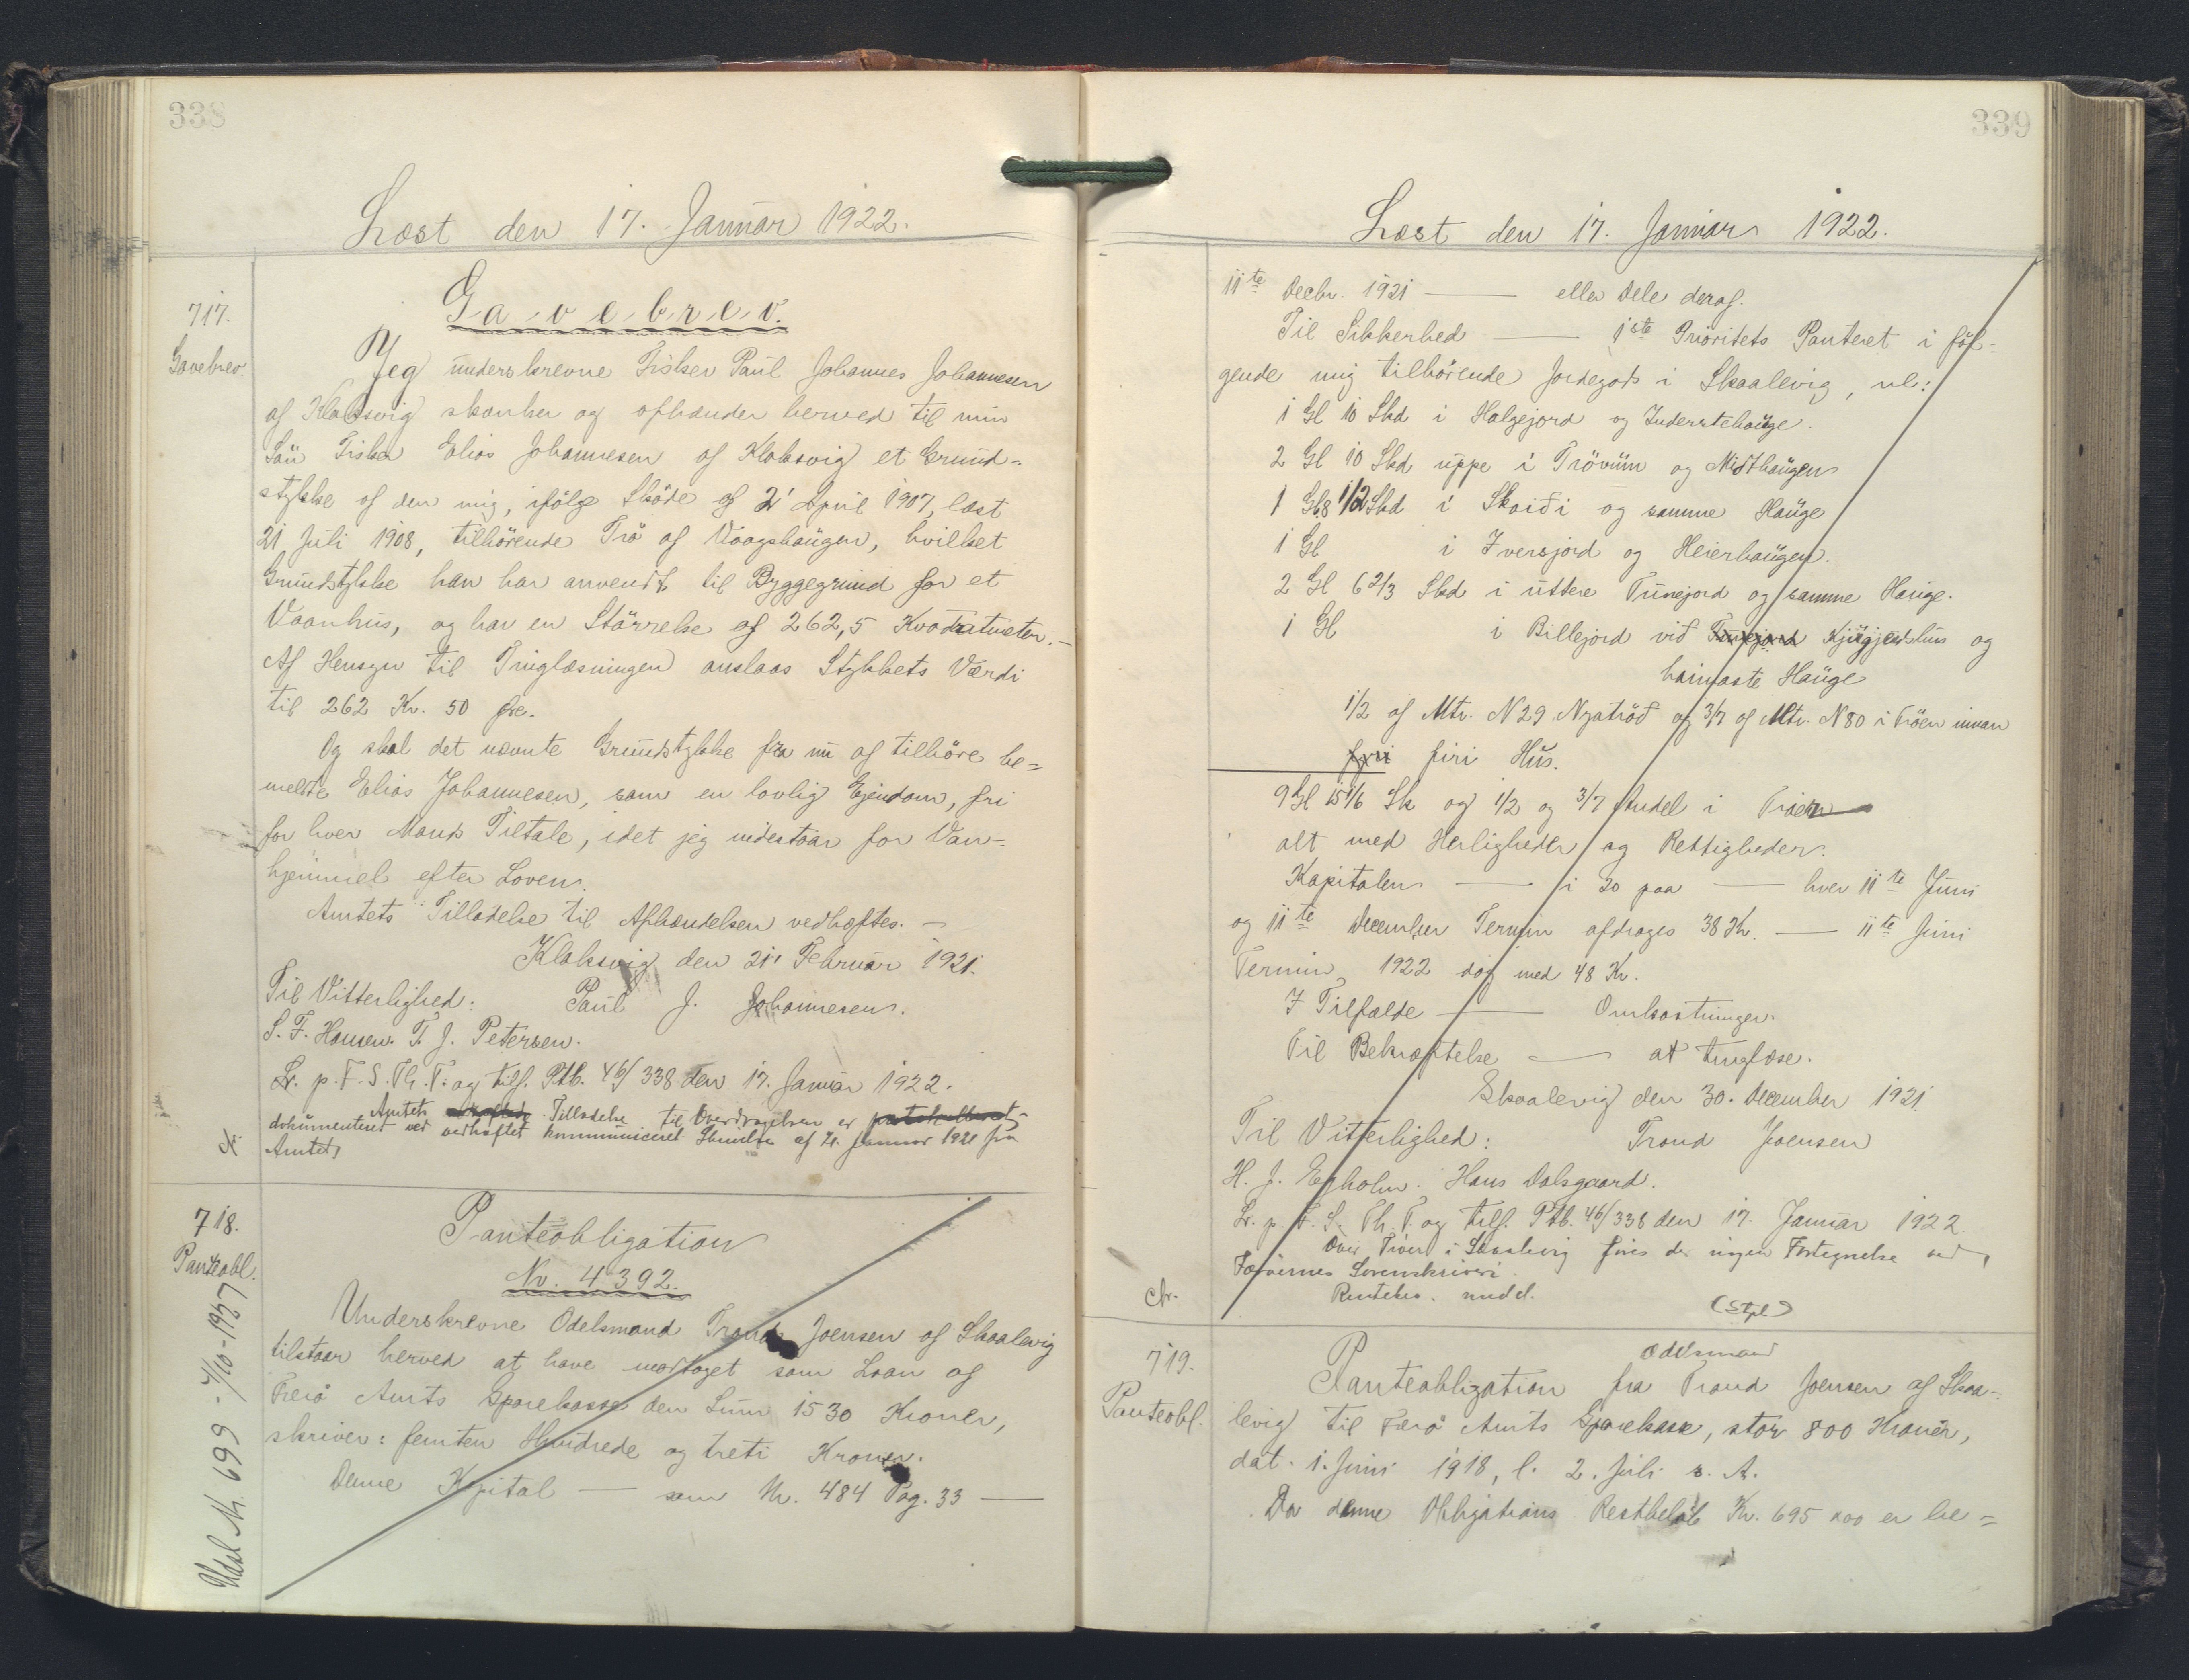 338
Læst den 17. Januar 1922.
717.
Gavebrev.
Gavebrev.
Jeg underskrevne Fisker Paul Johannes Johannesen
af Klaksvig skænker og afhænder herved til min
Sön Fisker Elias Johannesen af Klaksvig et Grund-
stykke af den mig, ifölge Sköde af 2' April 1907, læst
21 Juli 1908, tilhörende Trö af Vaagshaugen, hvilket
Grundstykke han har anvendt til Byggegrund for et
Vaanhus, og har en Störrelse af 262,5 Kvadratmeter.-
Af Hensyn til Tinglæsningen anslaas Stykkets Værdi
til 262 Kr. 50 Øre.
Og skal det nævnte Grundstykke fra nu af tilhöre be-
meldte Elias Johannesen, som en lovlig Ejendom, fri
for hver Mands Tiltale, idet jeg indestaar for Van-
hjemmel efter Loven.
Amtets Tilladelse til Afhændelsen vedhæftes. -
Klaksvig den 21' Februar 1921.
Til Vitterlighed: Paul J. Johannesen.
S. F. Hansen. T. J. Petersen.
Lr. p. F. S. Th. T. og tilf. Ptb. 46/338 den 17. Januar 1922.
Amtets Tilladelse til Overdragelsen er protokolleret
dokumenteret ved vedhæftet kommuniceret Skrivelse af 21. Januar 1921 fra
Amtet.
718.
Panteobl.
Udsl. N. 699 - 7/10-1927
Panteobligation
Nr. 4392.
Underskrevne Odelsmand Trond Joensen af Skaalevig
tilstaar herved at have modtaget som Laan af
Færö Amts Sparekasse den Sum 1530 Kroner,
skriver: femten Hundrede og treti Kroner.
Denne Kapital — som Nr. 484 Pag. 33 —
339
Læst den 17. Januar 1922.
11te Decbr. 1921 — eller Dele deraf.
Til Sikkerhed — 1ste Prioritets Panteret i föl-
gende mig tilhörende Jordegods i Skaalevig, nl:
1 Gl 10 Skd i Halgejord og Inderstehauge.
2 Gl 10 Skd uppe i Trövum og Midthaugen
1 Gl 8 1/2 Skd i Skaidi og samme Hauge
1 Gl i Iversjord og Heierhaugen.
2 Gl 6 2/3 Skd i uttere Tunejord og samme Hauge.
1 Gl i Billejord vid Tunejord Kjügjarhus og
haimaste Hauge
1/2 af Mtr. N 29 Nyatröd og 3/7 af Mtr. N 80 i Tröen innan
fyri firi Hus.
9 Gl 15 1/6 Sk og 1/2 og 3/7 Andel i Tröen
alt med Herligheder og Rettigheder.
Kapitalen — i 20 paa — hver 11te Juni
og 11te December Termin afdrages 38 Kr. — 11te Juni
Termin 1922 dog med 48 Kr.
I Tilfælde — Omkostninger.
Til Bekræftelse — at tinglæse.
Skaalevig den 30. December 1921.
Til Vitterlighed: Trond Joensen
H. J. Egholm. Hans Dalsgaard.
Lr. p. F. S. Th. T. og tilf. Ptb. 46/338 den 17. Januar 1922
Over Tröen i Skaalevig fines der ingen Fortegnelse ved
Færöernes Sorenskriveri.
Rentebr. medd.
(Stpl)
719.
Panteobl.
Odelsmand
Panteobligation fra Trond Joensen af Skaa-
levig til Færö Amts Sparekasse, stor 800 Kroner,
dat. 1. Juni 1918, l. 2. Juli s. A.
Da denne Obligations Restbelöb Kr. 695 x00 er be-